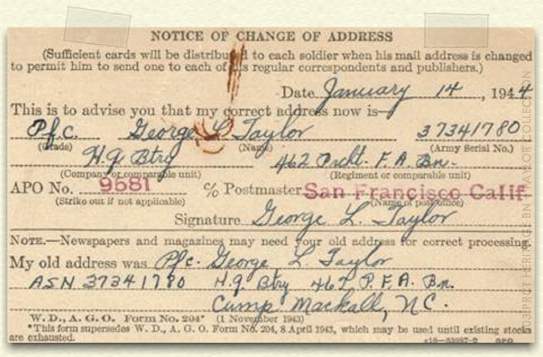 NOTICE OF CHANGE OF ADDRESS
(Sufficient cards will be distributed to each soldier when his mail address is changed
to permit him to send one to each of his regular correspondents and publishers.)
Date January 14, 1944
This is to advise you that my correct address now is—
Pfc. George L Taylor 37341780
(Grade) (Name) (Army Serial No.)
Hq Btry 462 Prcht. F.A. Bn.
(Company or comparable unit) (Regiment or comparable unit)
APO No. 9681 c/o Postmaster San Francisco Calif
(Strike out if not applicable) (Name of postoffice)
Signature George L. Taylor
NOTE.—Newspapers and magazines may need your old address for correct processing.
My old address was Pfc. George L Taylor
ASN 37341780 Hq Btry 467, P.F.A. Bn.
Camp Mackall, N.C.
W. D., A. G. O. Form No. 204* (1 November 1943)
*This form supersedes W. D., A. G. O. Form No. 204, 8 April 1943, which may be used until existing stocks
are exhausted.